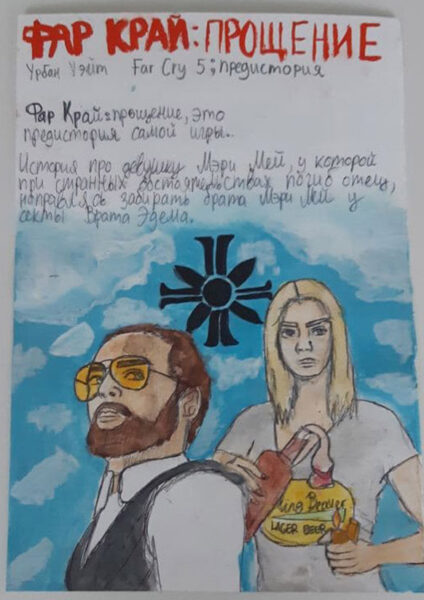 ФАР КРАЙ: ПРОЩЕНИЕ
Урбан Уэйт Far Cry 5: предистория
Фар Край: прощение, это
предистория самой игры.
История про девушку Мэри Мей, у которой
при странных обстоятельствах погиб отец,
направляясь забирать брата Мэри Мей у
секты Врата Эдема.
LAGER BEER